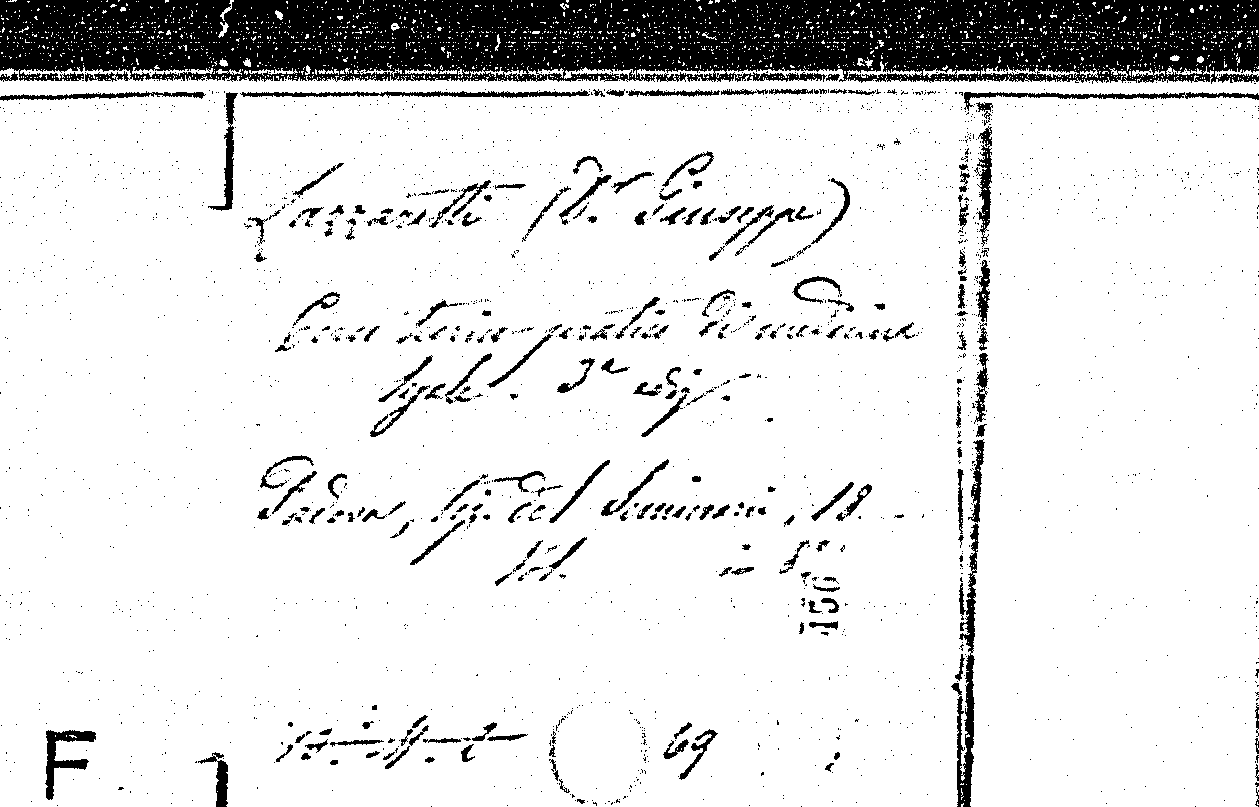 Lazzaretti (Dr. Giuseppe)
Corso teorico-pratico di medicina
legale. 3a ediz.
Padova, tip. del Seminario, 18
Vol. in 8º.
150
69
F